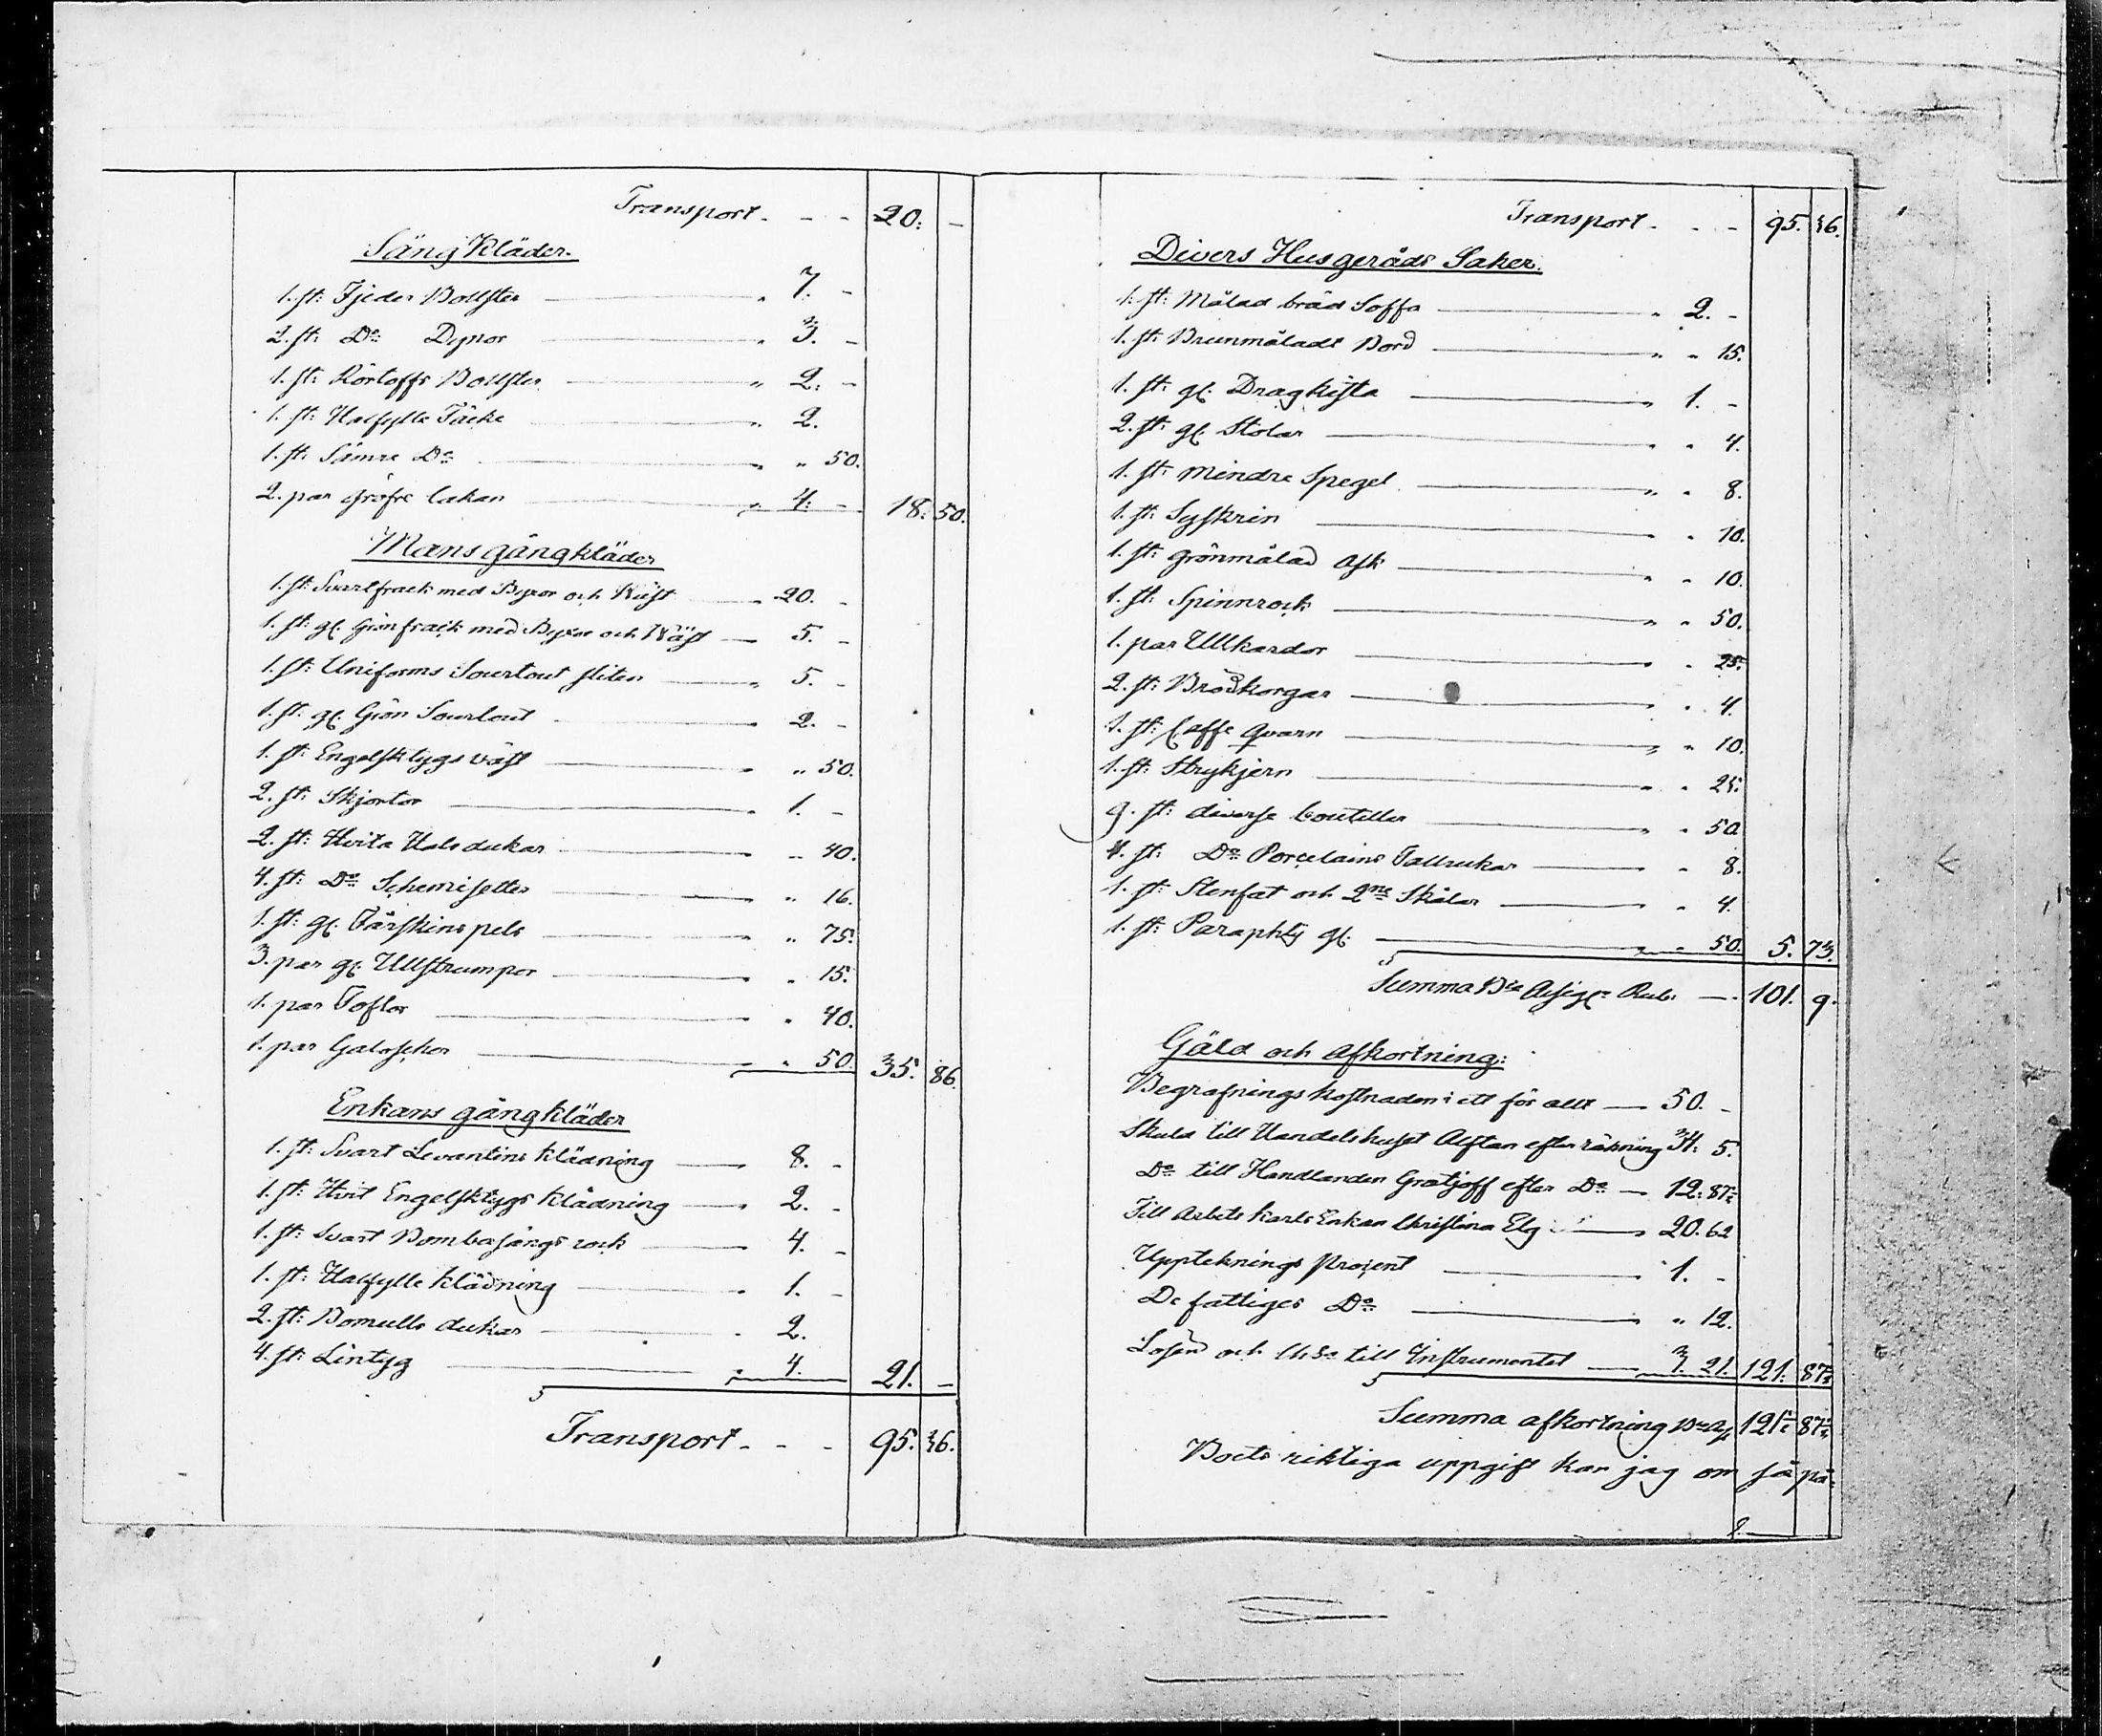 Transport. - - 20. -
Säng Kläder.
1. st: Fjeder Bollster " 7. -
2. st: Do Dynor " 3. -
1. st: Bollster " 2. -
1. st: Halfylle Täcke " 2.
1. st: Sämre Do " " 50.
2. par gröfre lakan " 4. - 18. 50.
Mans gångkläder
1. st: Svart frack med Byxor och Wäst " 20. -
1. st: gl. Grön frack med Byxor och Wäst 5. -
1. st: Uniforms Sourtout sliten " 5. -
1. st: gl. Grön Sourtout " 2. -
1. st: Engelsktygs väst " " 50.
2. st: Skjortor " 1. -
2. st: Hvita Halsdukar " " 40.
4. st: Do Schemisetter " " 16.
1. st: gl. Fårskins pels " " 75.
3. par gl. Ullstrumpor " " 15.
1. par Toflor " " 40.
1. par Galoscher " " 50. 35. 86.
Enkans gångkläder
1. st: Svart Levantins klädning " 8. -
1. st: Hvit Engelsktygs klädning " 2. -
1. st: Svart Bombasängs rock " 4. -
1. st: Halfylle klädning " 1. -
2. st: Bomulls dukar " 2.
4. st: Lintyg " 4. 21. -
Transport. - - 95. 36.
Transport. - - 95. 36.
Divers Husgeråds Saker.
1. st: Målad bräd Soffa " 2. -
1. st: Brunmåladt Bord " " 15.
1. st: gl. Dragkista " 1. -
2. st: gl. Stolar " " 4.
1. st: mindre Spegel " " 8.
1. st: Syskrin " " 10.
1. st: grönmålad Ask " " 10.
1. st: Spinnrock " " 50.
1. par Ullkardor " " 25.
2. st: Brödkorgar " " 4.
1. st: Caffe qvarn " " 10.
1. st: Strykjern " " 25.
9. st: diverse bouteiller " " 50
4. st: Do Porcelains Tallrickar " 8.
1. st: Stenfat och 2ne Skålar " 4.
1. st: gl. " " 50. 5. 73.
Summa Bco Assign: Rub: 101. 9.
Gäld och afkortning:
Begrafnings kostnaden i ett för allt 50. -
Skuld till Handelshuset Alftan efter räkning 34. 5.
Do till Handlanden efter Do 12. 87½
Till Arbets karls Enkan Christina Elg 20. 62
Uppteknings Procent 1. -
De fattiges Do " 12.
Lösen och till Instrumentet 3. 21. 121. 87½
Summa afkortning Bco 121. 87½
riktiga uppgift kan jag om så på-